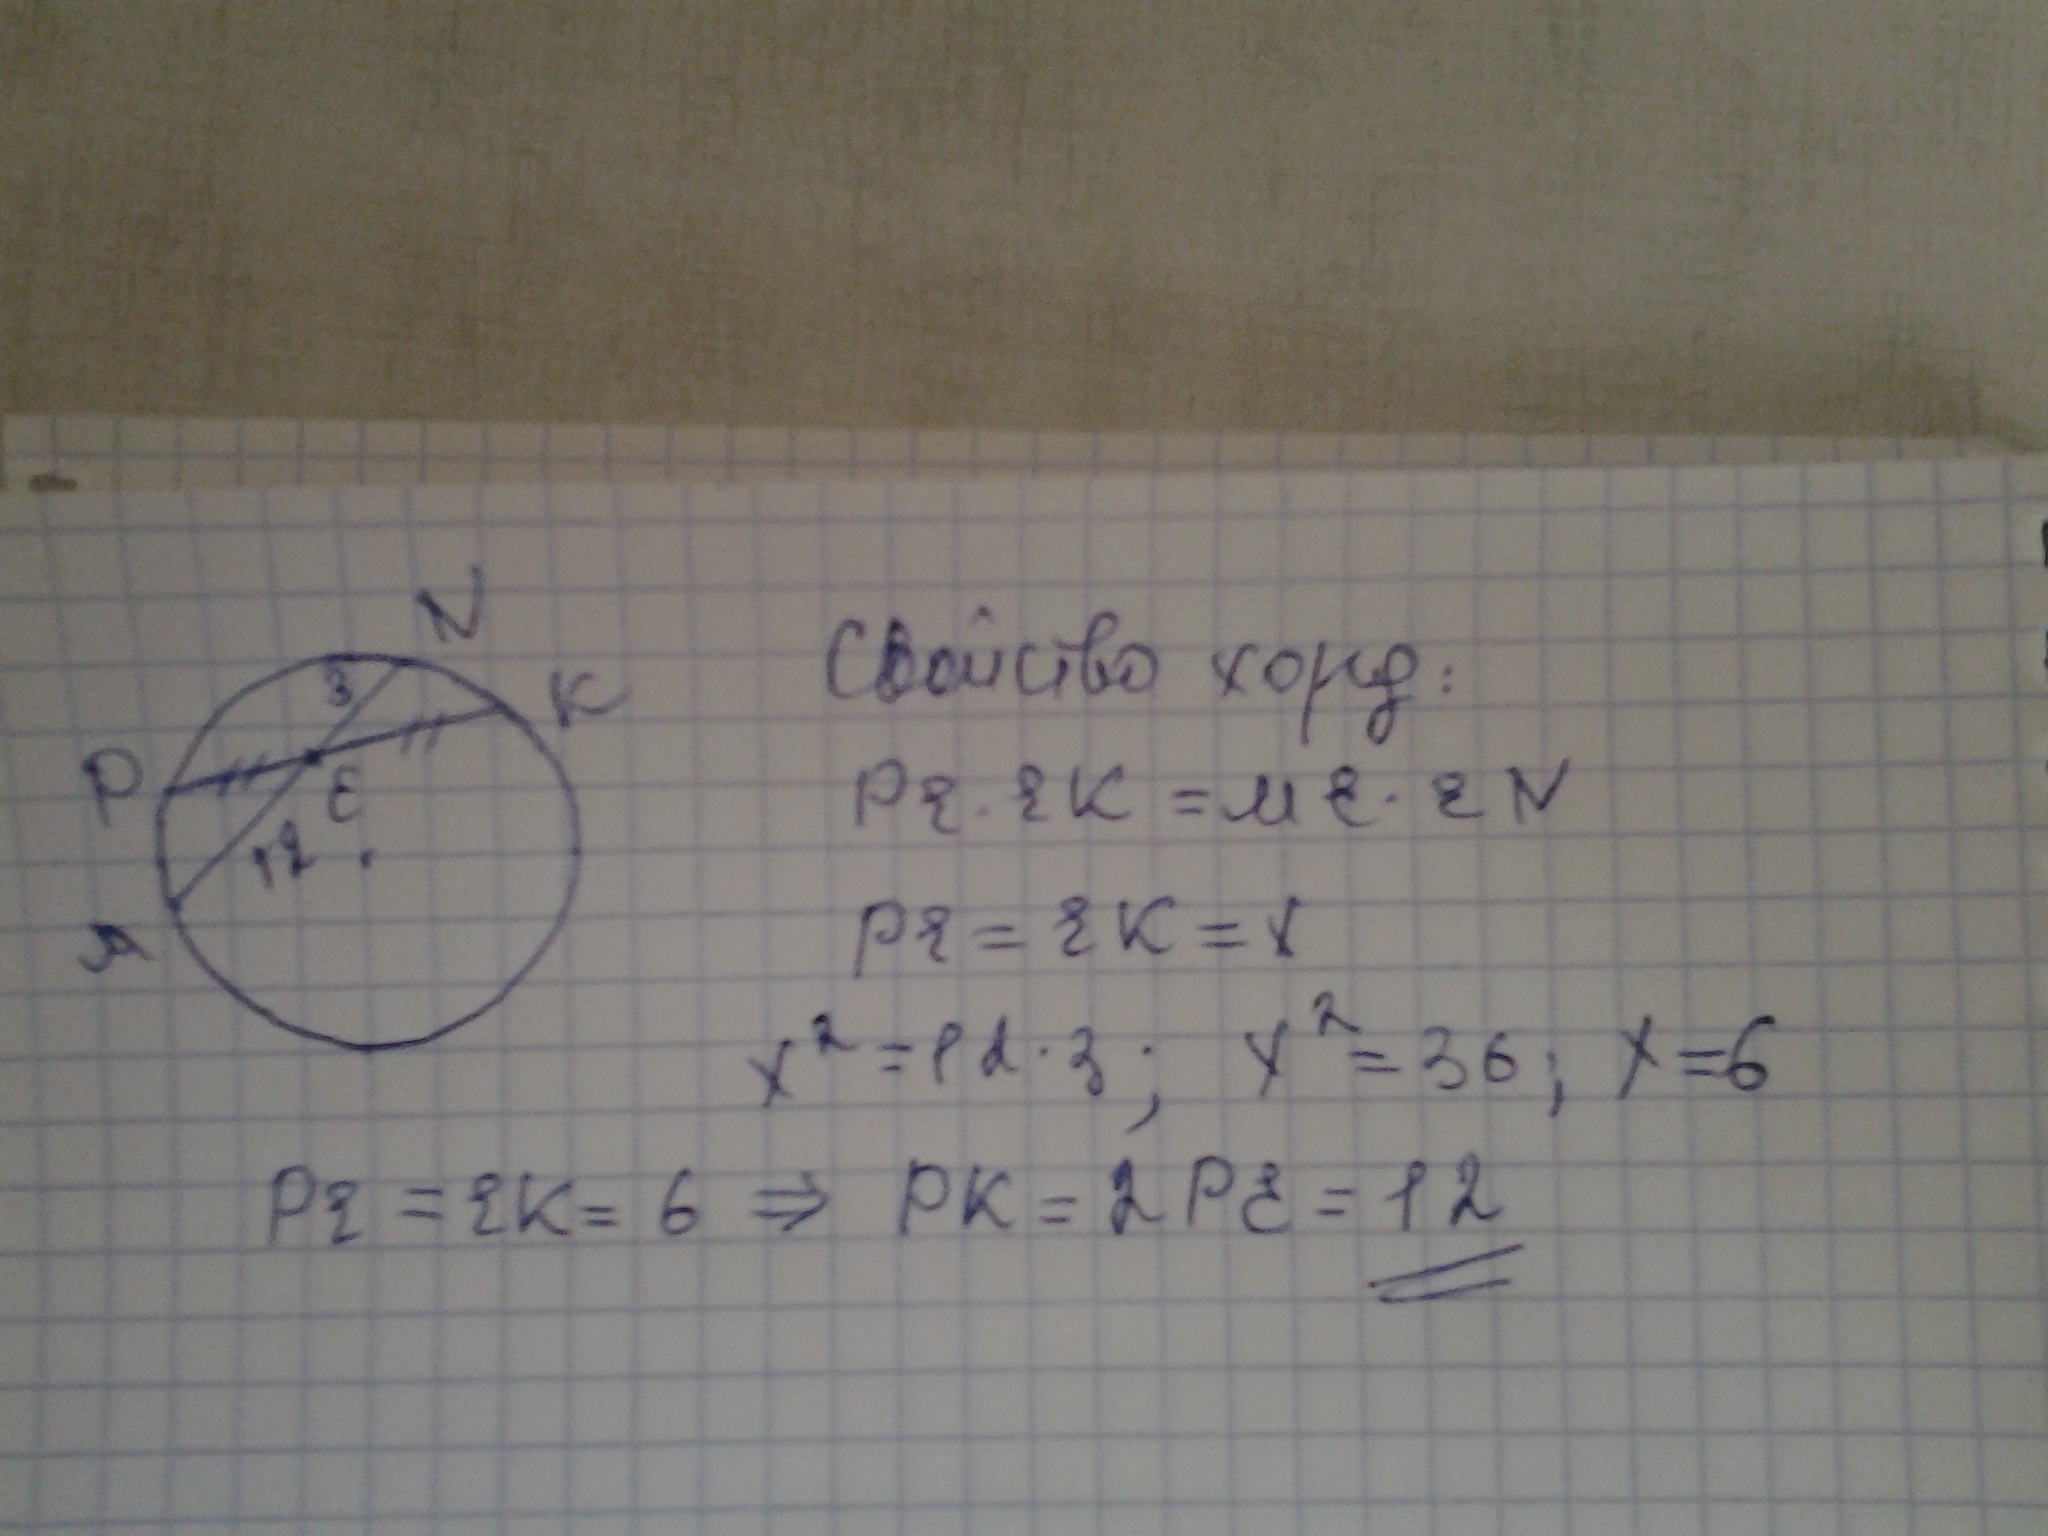 N
3
K
P
E
12
M
Свойство хорд:
PE · EK = ME · EN
PE = EK = x
x² = 12 · 3; x² = 36; x = 6
PE = EK = 6 ⇒ PK = 2PE = 12